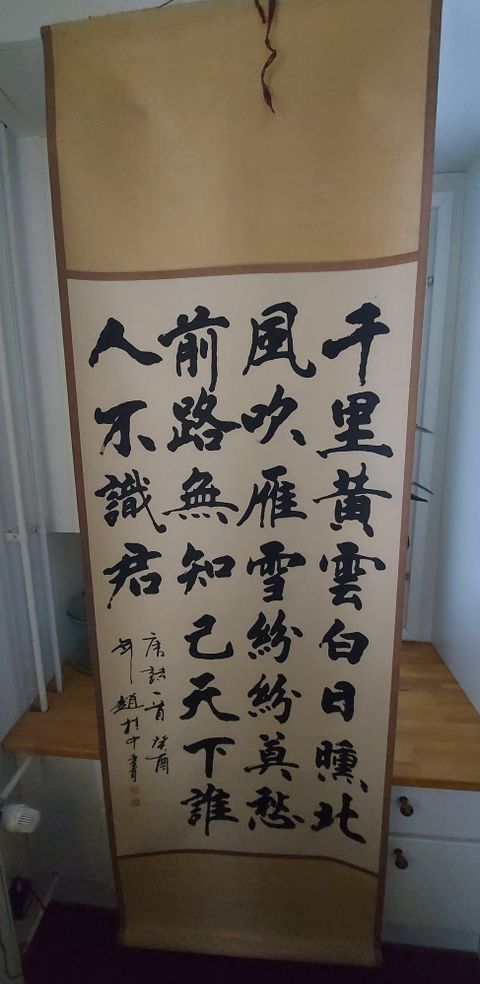 千里黄雲白日曛北
風吹雁雪紛紛莫愁
前路無知己天下誰
人不識君
唐詩一首癸酉
年趙中書